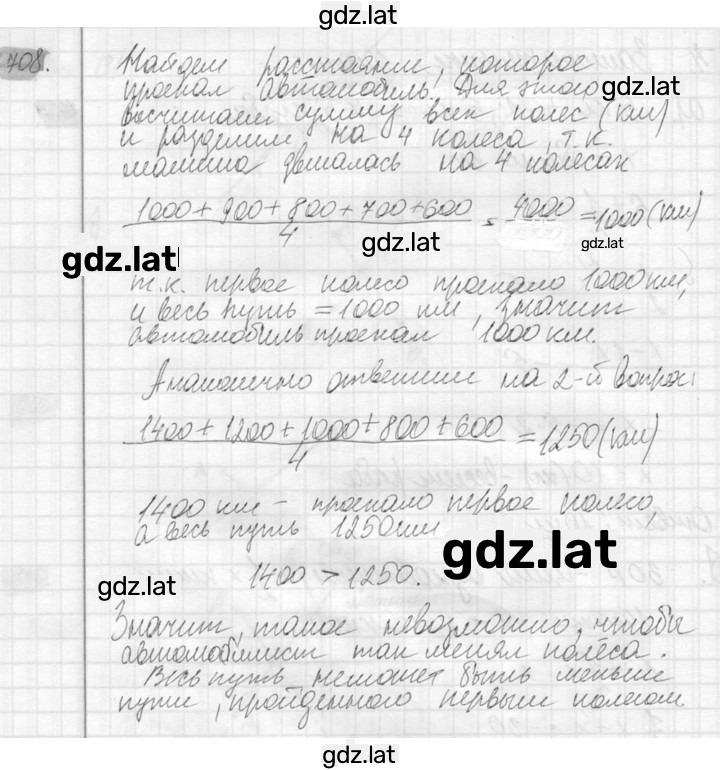 gdz.lat
708.
Найдем расстояние, которое
проехал автомобиль. Для этого
gdz.lat
посчитаем сумму всех колес (км)
и разделим на 4 колеса, т.к.
машина двигалась на 4 колесах
1000+900+800+700+600 / 4 = 4000 / = 1000 (км)
gdz.lat
gdz.lat
gdz.lat
т.к. первое колесо проехало 1000 км,
и весь путь = 1000 км, значит
автомобиль проехал 1000 км.
Аналогично ответим на 2-й вопрос:
1400+1200+1000+800+600 / 4 = 1250 (км)
1400 км – проехало первое колесо
а весь путь 1250 км
gdz.lat
gdz.lat
1400 > 1250.
Значит, такое невозможно, чтобы
автомобилист так менял колёса.
Весь путь не может быть меньше
пути, пройденного первым колесом.
gdz.lat